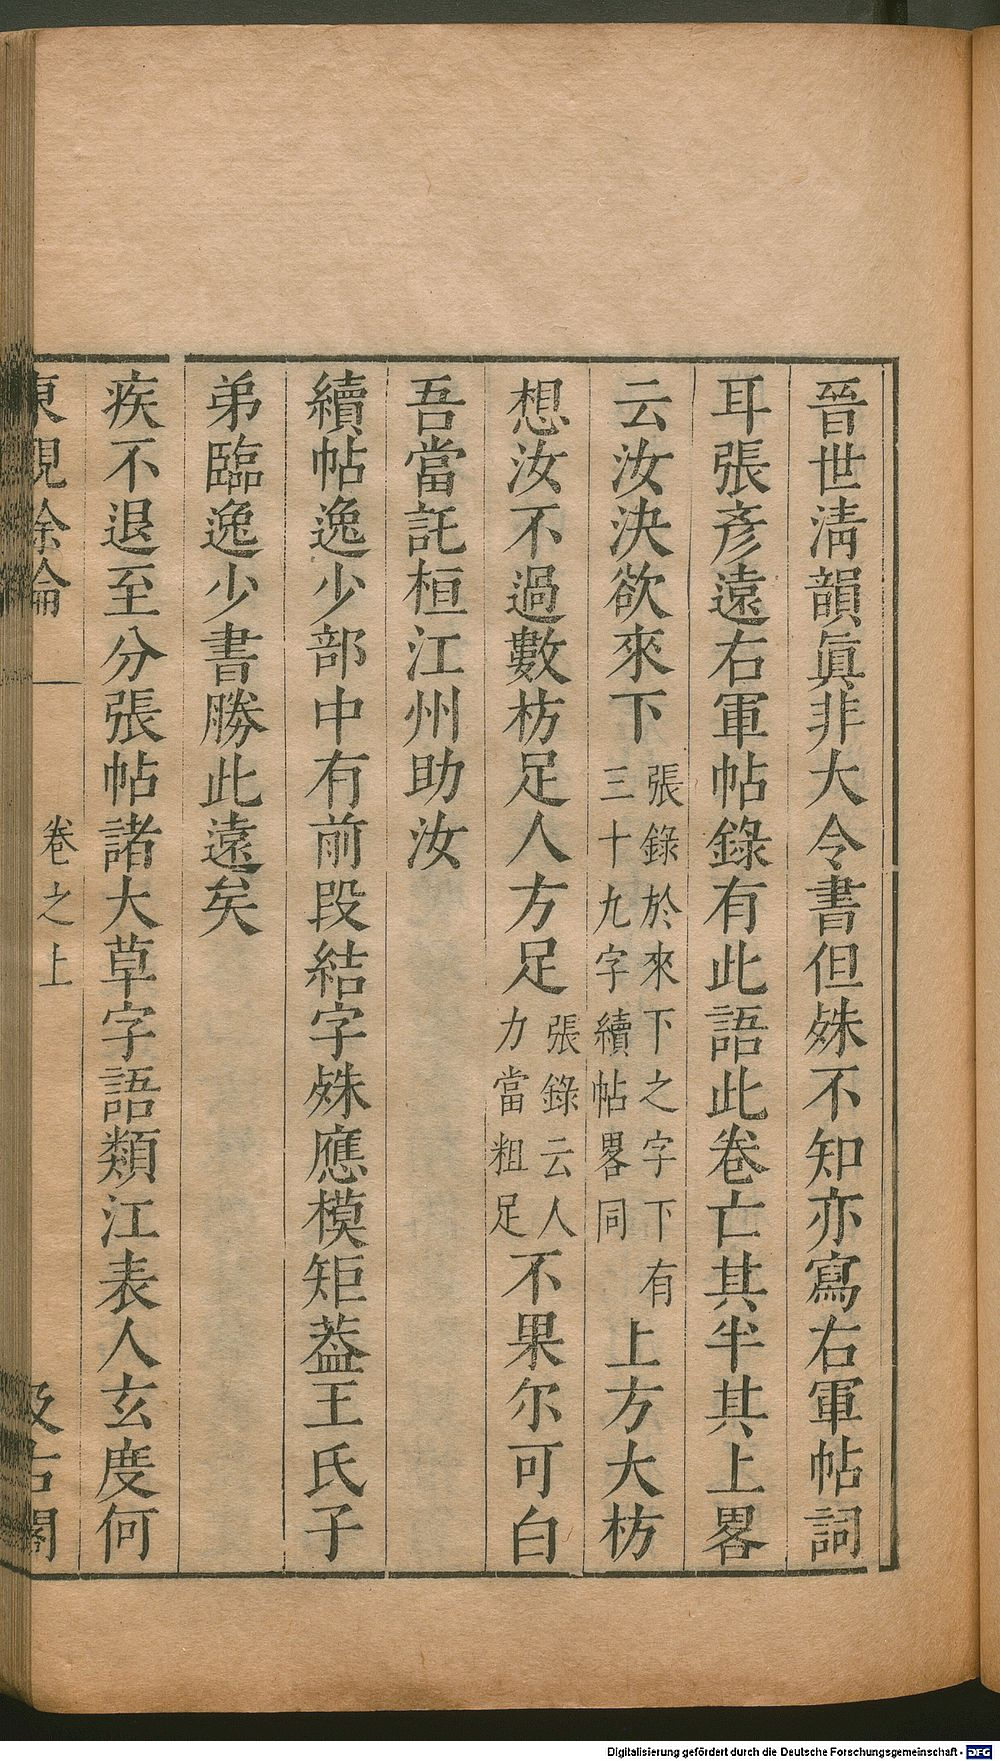 晉世淸韻眞非大令書但姝不知亦寫右軍帖詞
耳張彥遠右軍帖錄有此語此卷亡其半其上畧
云汝決欲來下張錄於來下之字下有三十九字續帖畧同上方大枋
想汝不過數枋足人方足張錄云人力當粗足不果尔可白
吾當託桓江州助汝
續帖逸少部中有前段結字姝應模矩葢王氏子
弟臨逸少書勝此遠矣
疾不退至分張帖諸大草字語類江表人玄度何
東觀余論 卷之上 汲古閣
Digitalisierung gefördert durch die Deutsche Forschungsgemeinschaft - DFG